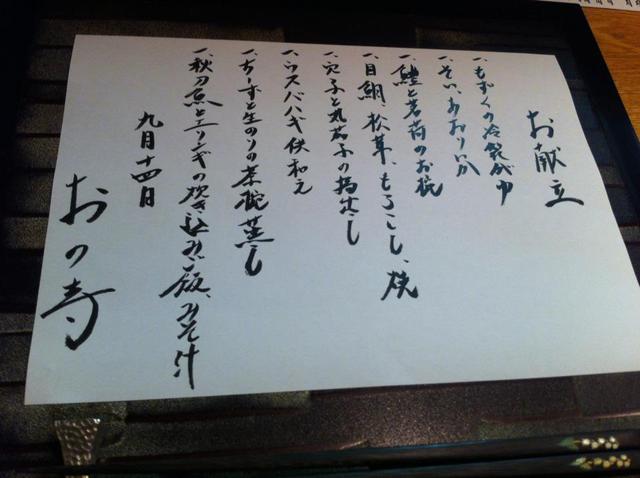 お献立
一、もずくの冷製がゆ
一、そい、あおりいか
一、鱧と茗荷のお椀
一、目鯛、松茸、もろこし、焼
一、穴子と丸茄子の揚出し
一、ウスバハギ 伏和え
一、ちーずと生のりの茶碗蒸し
一、秋刀魚とエリンギの炊き込みご飯、みそ汁
九月十四日
おの寺